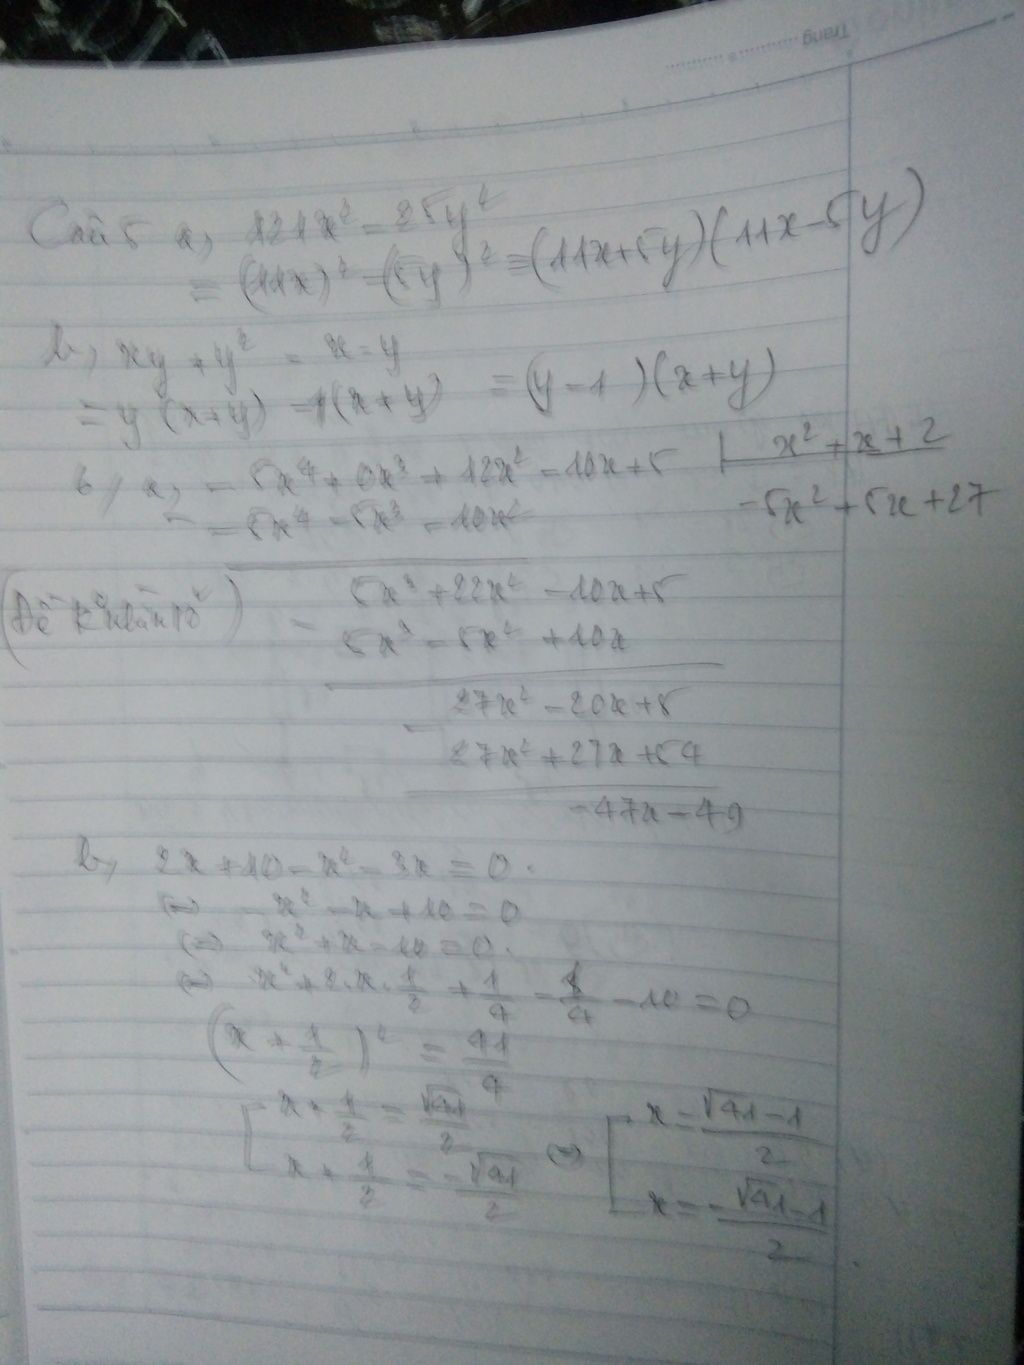 Trang
Câu 5 a, 121x² - 25y²
= (11x)² - (5y)² = (11x+5y)(11x-5y)
b, xy + y² - x - y
= y(x+y) - 1(x+y) = (y-1)(x+y)
6/ a, - 5x⁴ + 0x³ + 12x² - 10x + 5 | x² + x + 2
- = 5x⁴ - 5x³ - 10x² -5x² + 5x + 27
5x³ + 22x² - 10x + 5
(Đề
- 5x³ - 5x² + 10x
27x² - 20x + 5
- 27x² + 27x + 54
-47x - 49
b, 2x + 10 - x² - 3x = 0.
(=) -x² - x + 10 = 0
(=) x² + x - 10 = 0.
(=) x² + 2.x.1/2 + 1/4 - 1/4 - 10 = 0
(x + 1/2)² = 41/4
[ x + 1/2 = √41/2 (=) [ x = √41-1/2
x + 1/2 = -√41/2 x = -√41-1/2